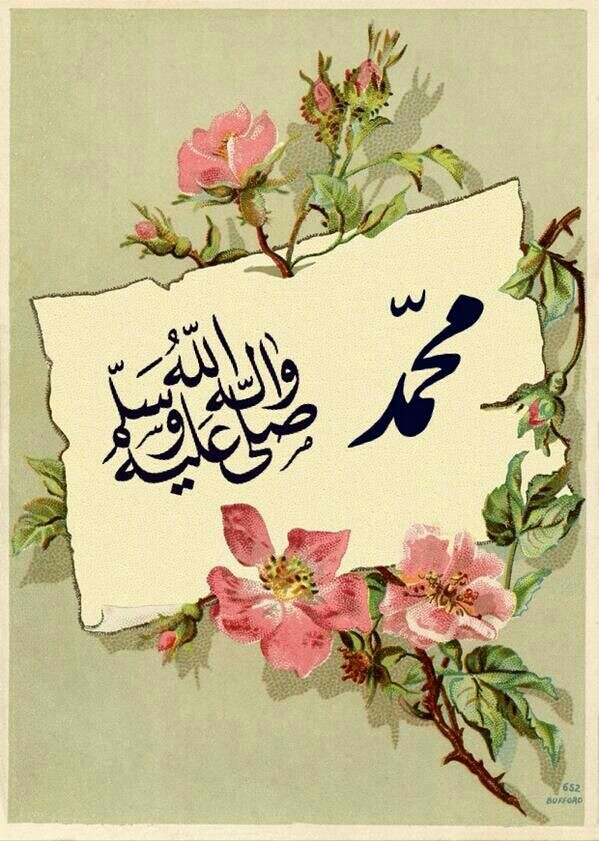 محمّد
صلى الله عليه وآله وسلم
652
BUFFORD